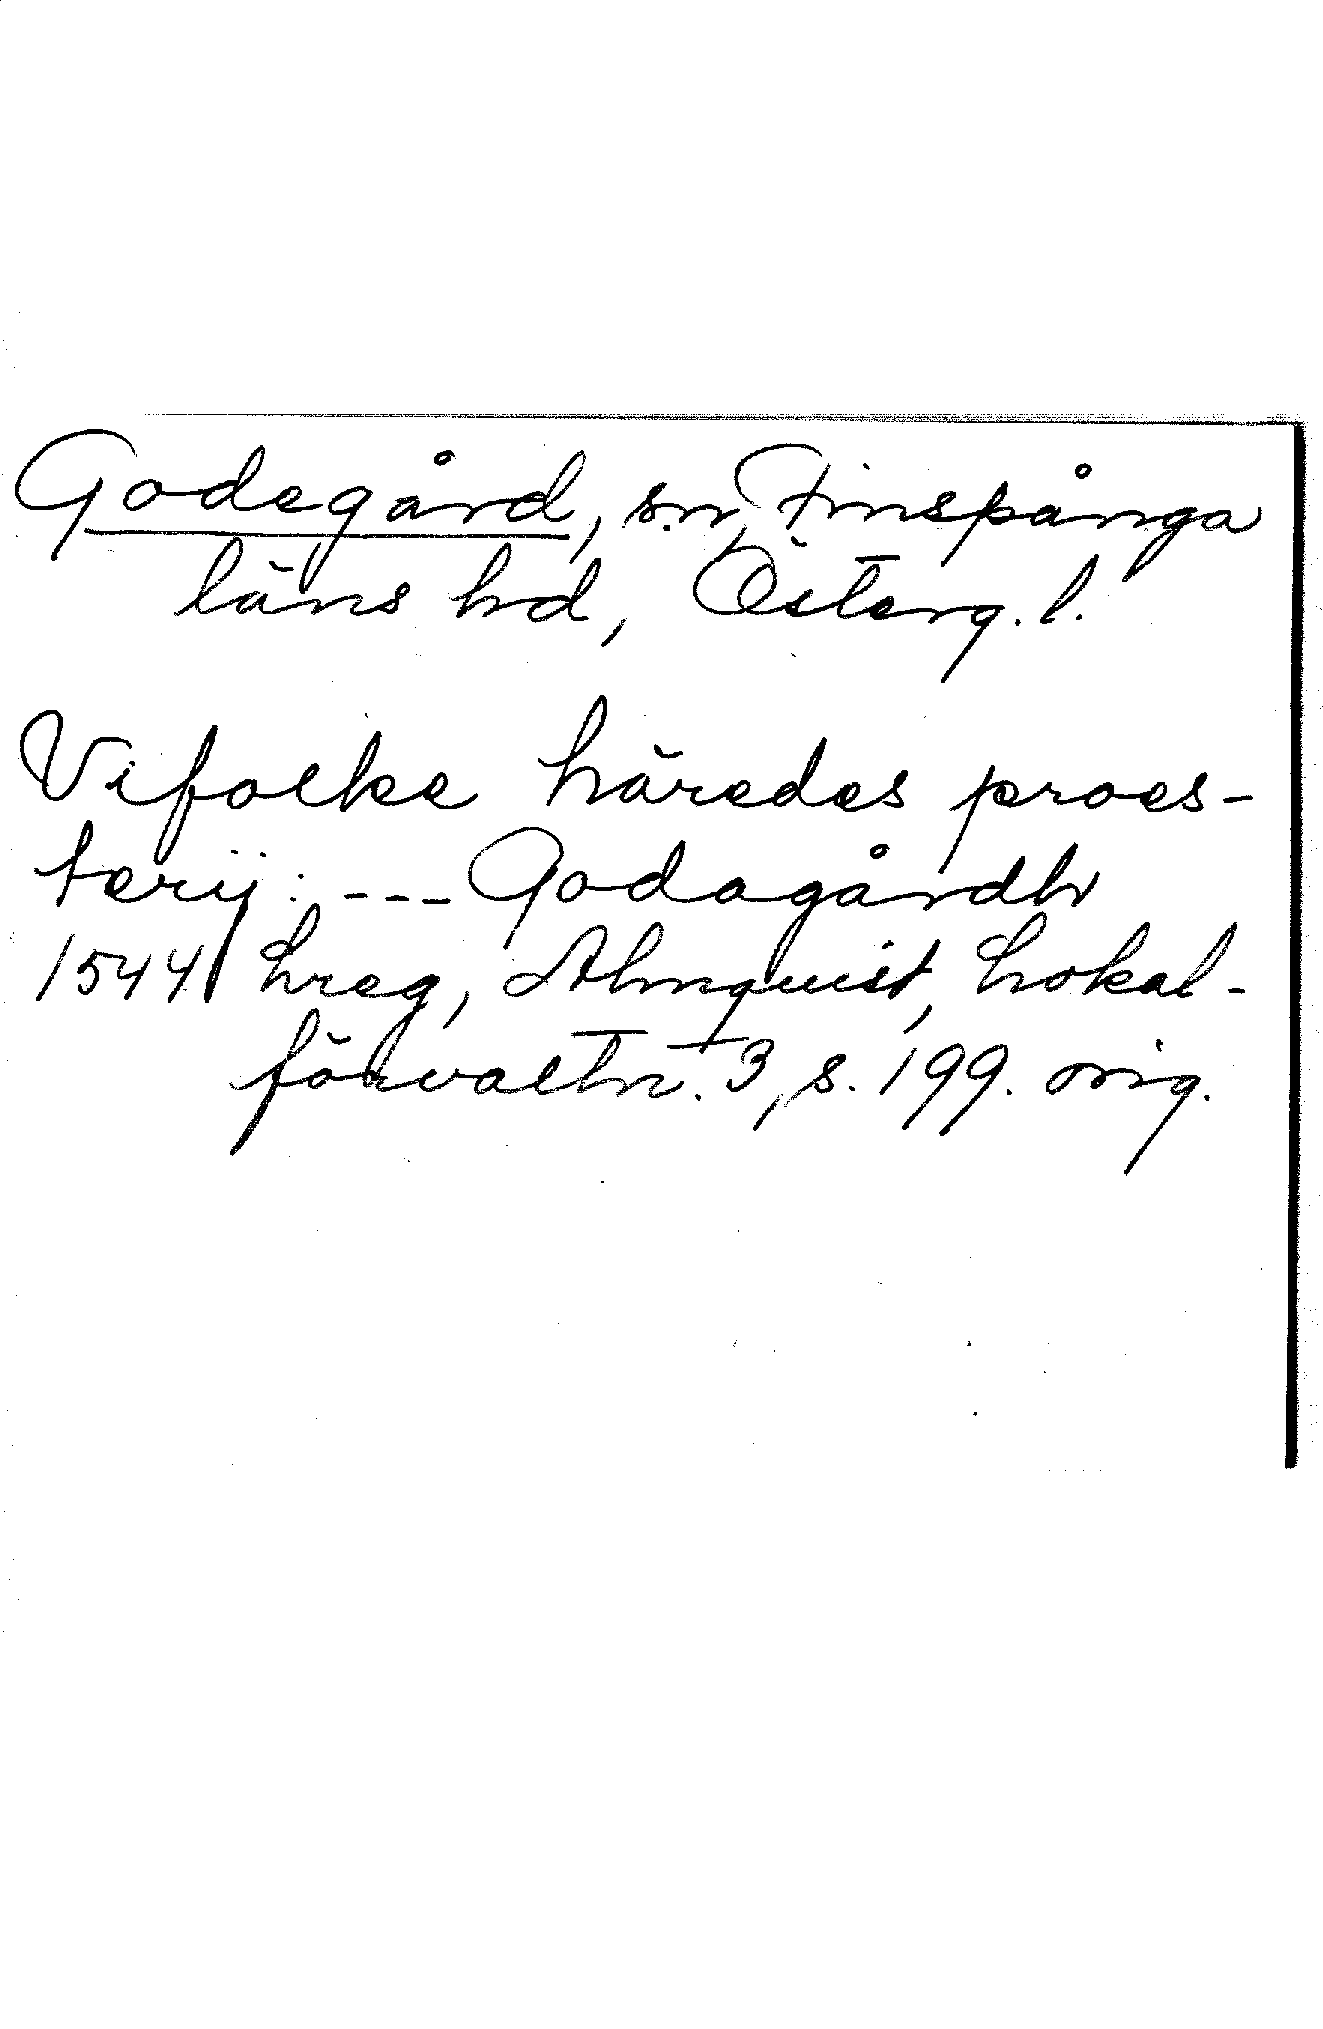 Godegård, sn, Finspånga
läns hd, Österg. l.
Vifolke häredes proes-
terij: --- Godagårdh
1544 Lreg, Almquist, Lokal-
förvaltn. 3, s. 199. orig.